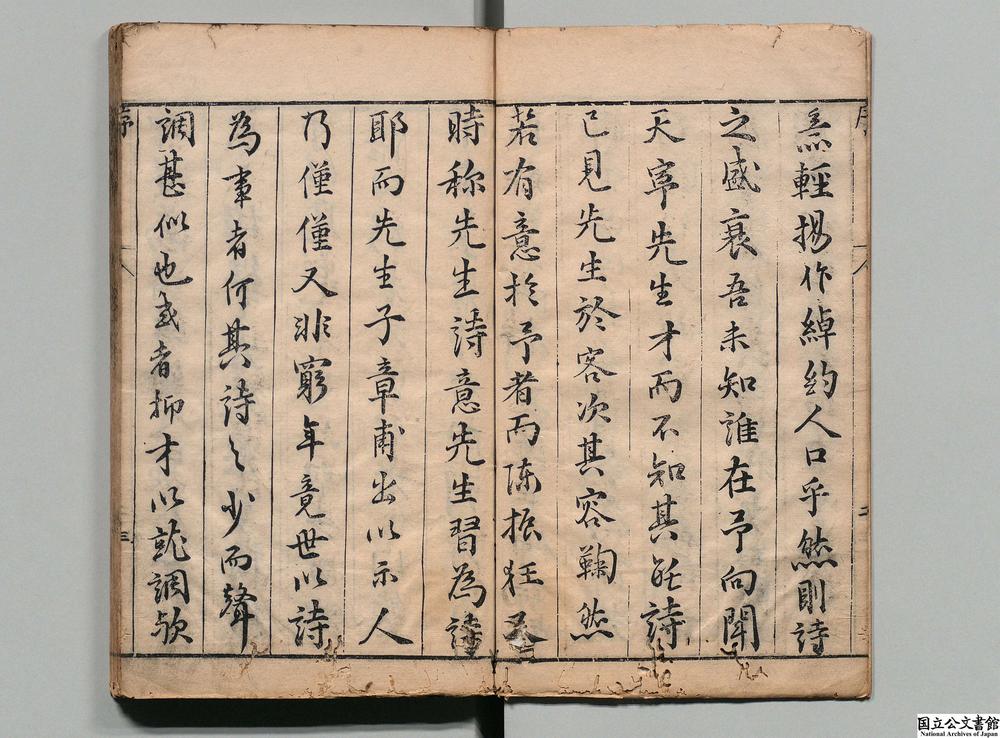 序
二
烝輕揚作綽約人口乎然則詩
之盛衰吾未知誰在予向聞
天寧先生才而不知其能詩
已見先生於客次其容鞠然
若有意於予者而陳振狂又
時称先生詩意先生習為詩
耶而先生子章甫出以示人
乃僅僅又非窮年竟世以詩
為事者何其詩之少而聲
調甚似也或者抑才以就調歟
序
三
国立公文書館
National Archives of Japan